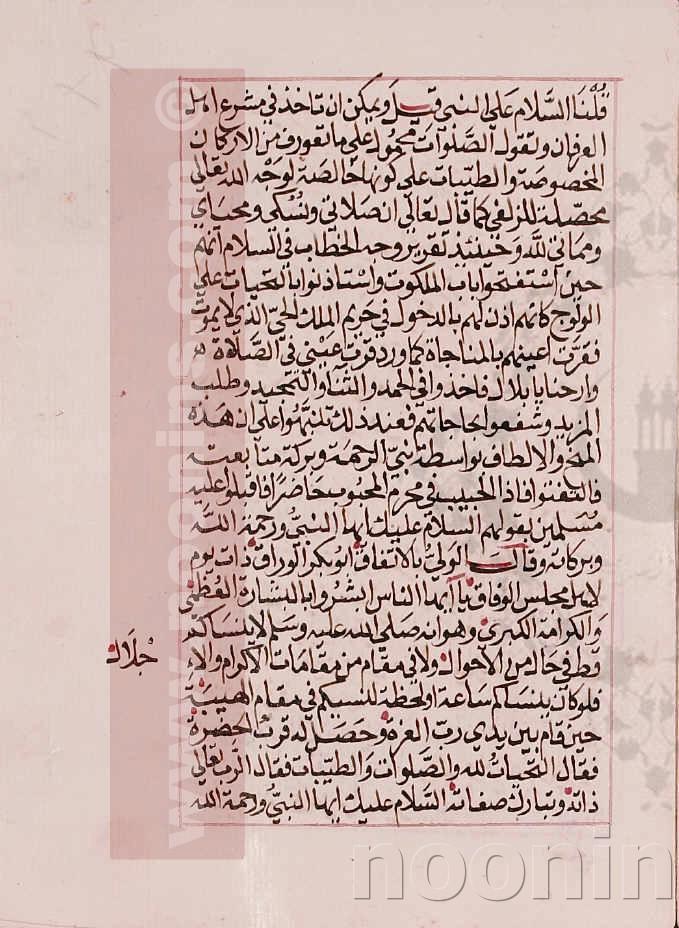 قلنا السَّلام على النبي قيل ويمكن ان تاخذ في مشرع اهل
العرفان وتقول الصَّلوات محمول على ما تعورف من الاركان
المخصوصة والطيّبات على كونها خالصة لوجه الله تعالى
محصّلة للزلفى كما قال تعالى ان صلاتي ونسكي ومحياي
ومماتي لله وحينئذ تقرير وجه الخطاب في السلام انهم
حين استفتحوا باب الملكوت واستاذنوا بالتحيات على
الولوج كانهم اذن لهم بالدخول في حريم الملك الحيّ الذي لا يموت
فقرّت اعينهم بالمناجاة كما ورد قرت عيني في الصَّلاة
وارحنا يا بلال فاخذوا في الحمد والثناء والتمجيد وطلب
المزيد وشفعوا لحاجاتهم فعند ذلك تنبّهوا على ان هذه
المنح والالطاف بواسطة نبيّ الرحمة وبركة متابعته
فالتفتوا فاذا الحبيب في محرم المحبوب حاضر فاقبلوا عليه
مسلمين بقولهم السلام عليك ايها النبيُّ ورحمة الله
وبركاته وقال الوليُّ بالاتفاق ابو بكر الوراق ذات يوم
لاهل مجلس الوفاق يا ايها الناس ابشروا بالبشارة العظمى
والكرامة الكبرى وهو انه صلى الله عليه وسلم لا ينساكم
قط في حال من الاحوال ولا في مقام من مقامات الاكرام والا
جلال
فلو كان ينساكم ساعة او لحظة لنسيكم في مقام الهيبة
حين قام بين يدي ربّ العزة وحصل له قرب الحضرة
فقال التحيات لله والصَّلوات والطيّبات فقال الرب تعالى
ذاته وتبارك صفاته السَّلام عليك ايها النبيُّ ورحمة الله
www.noorins.com ©
noonin